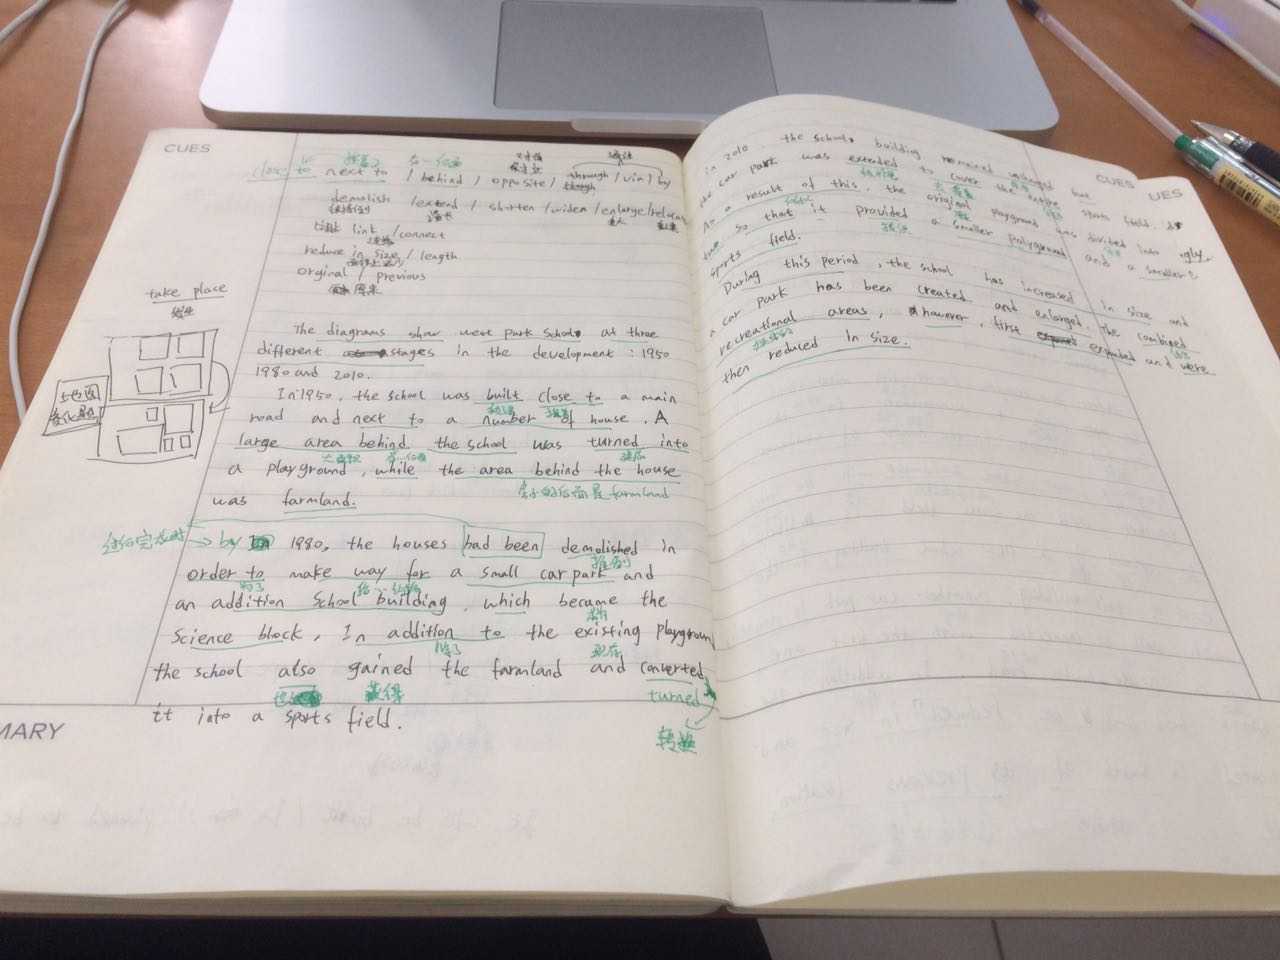 CUES
close to next to / behind / opposite / through / via / by
demolish / extend / shorten / widen / enlarge /
推倒
link / connect
连接
reduce in size / length
orginal / previous
原来
take place
发生
地图
变化题
The diagrams show west park School at three
different stages in the development : 1950
1980 and 2010.
In 1950, the school was built close to a main
road and next to a number of house. A
large area behind the school was turned into
a playground, while the area behind the house
房子的后面是farmland
was farmland.
过去完成时 → by 1980, the houses had been demolished in
推倒
order to make way for a small car park and
为了
an addition School building, which became the
Science block, In addition to the existing playground
除了 现存
the school also gained the farmland and converted
也 获得 turned
it into a sports field.
转换
MARY
CUES
UES
in 2010. the school building remained unchanged but
the car park was extended to cover the entire sports field.
As a result of this, the original playground was divided into
so that it provided a smaller playground and a smaller
提供
sports field.
During this period, the school has increased in size and
a car park has been created and enlarged. The combined
recreational areas, however, first expanded and were
then reduced in size.